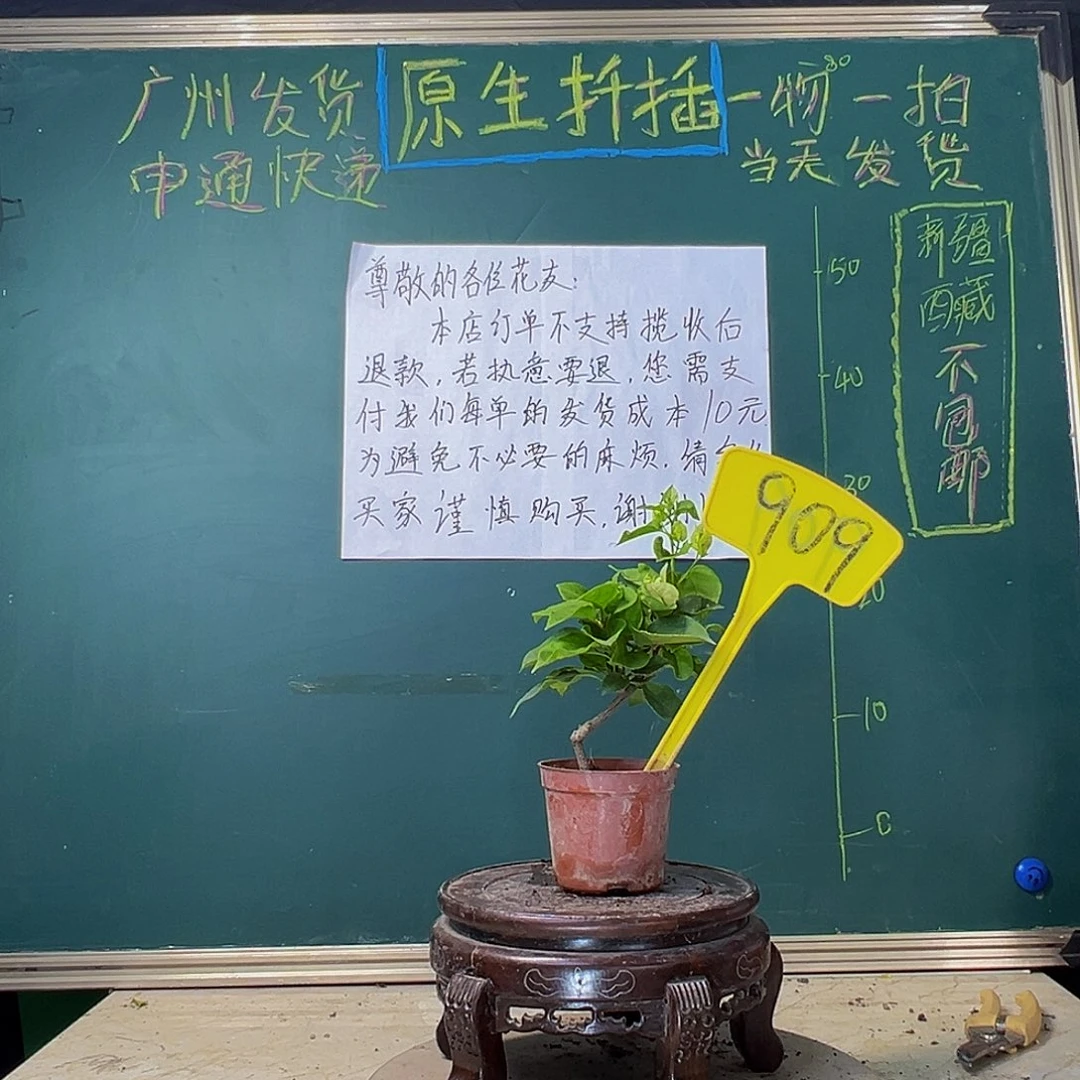 广州发货
原生扦插
一物一拍
申通快递
当天发货
新疆
西藏
不包邮
尊敬的各位花友：
本店订单不支持揽收后
退款，若执意要退，您需支
付我们每单的发货成本10元
为避免不必要的麻烦，请
买家谨慎购买，谢
909
50
40
30
20
10
0